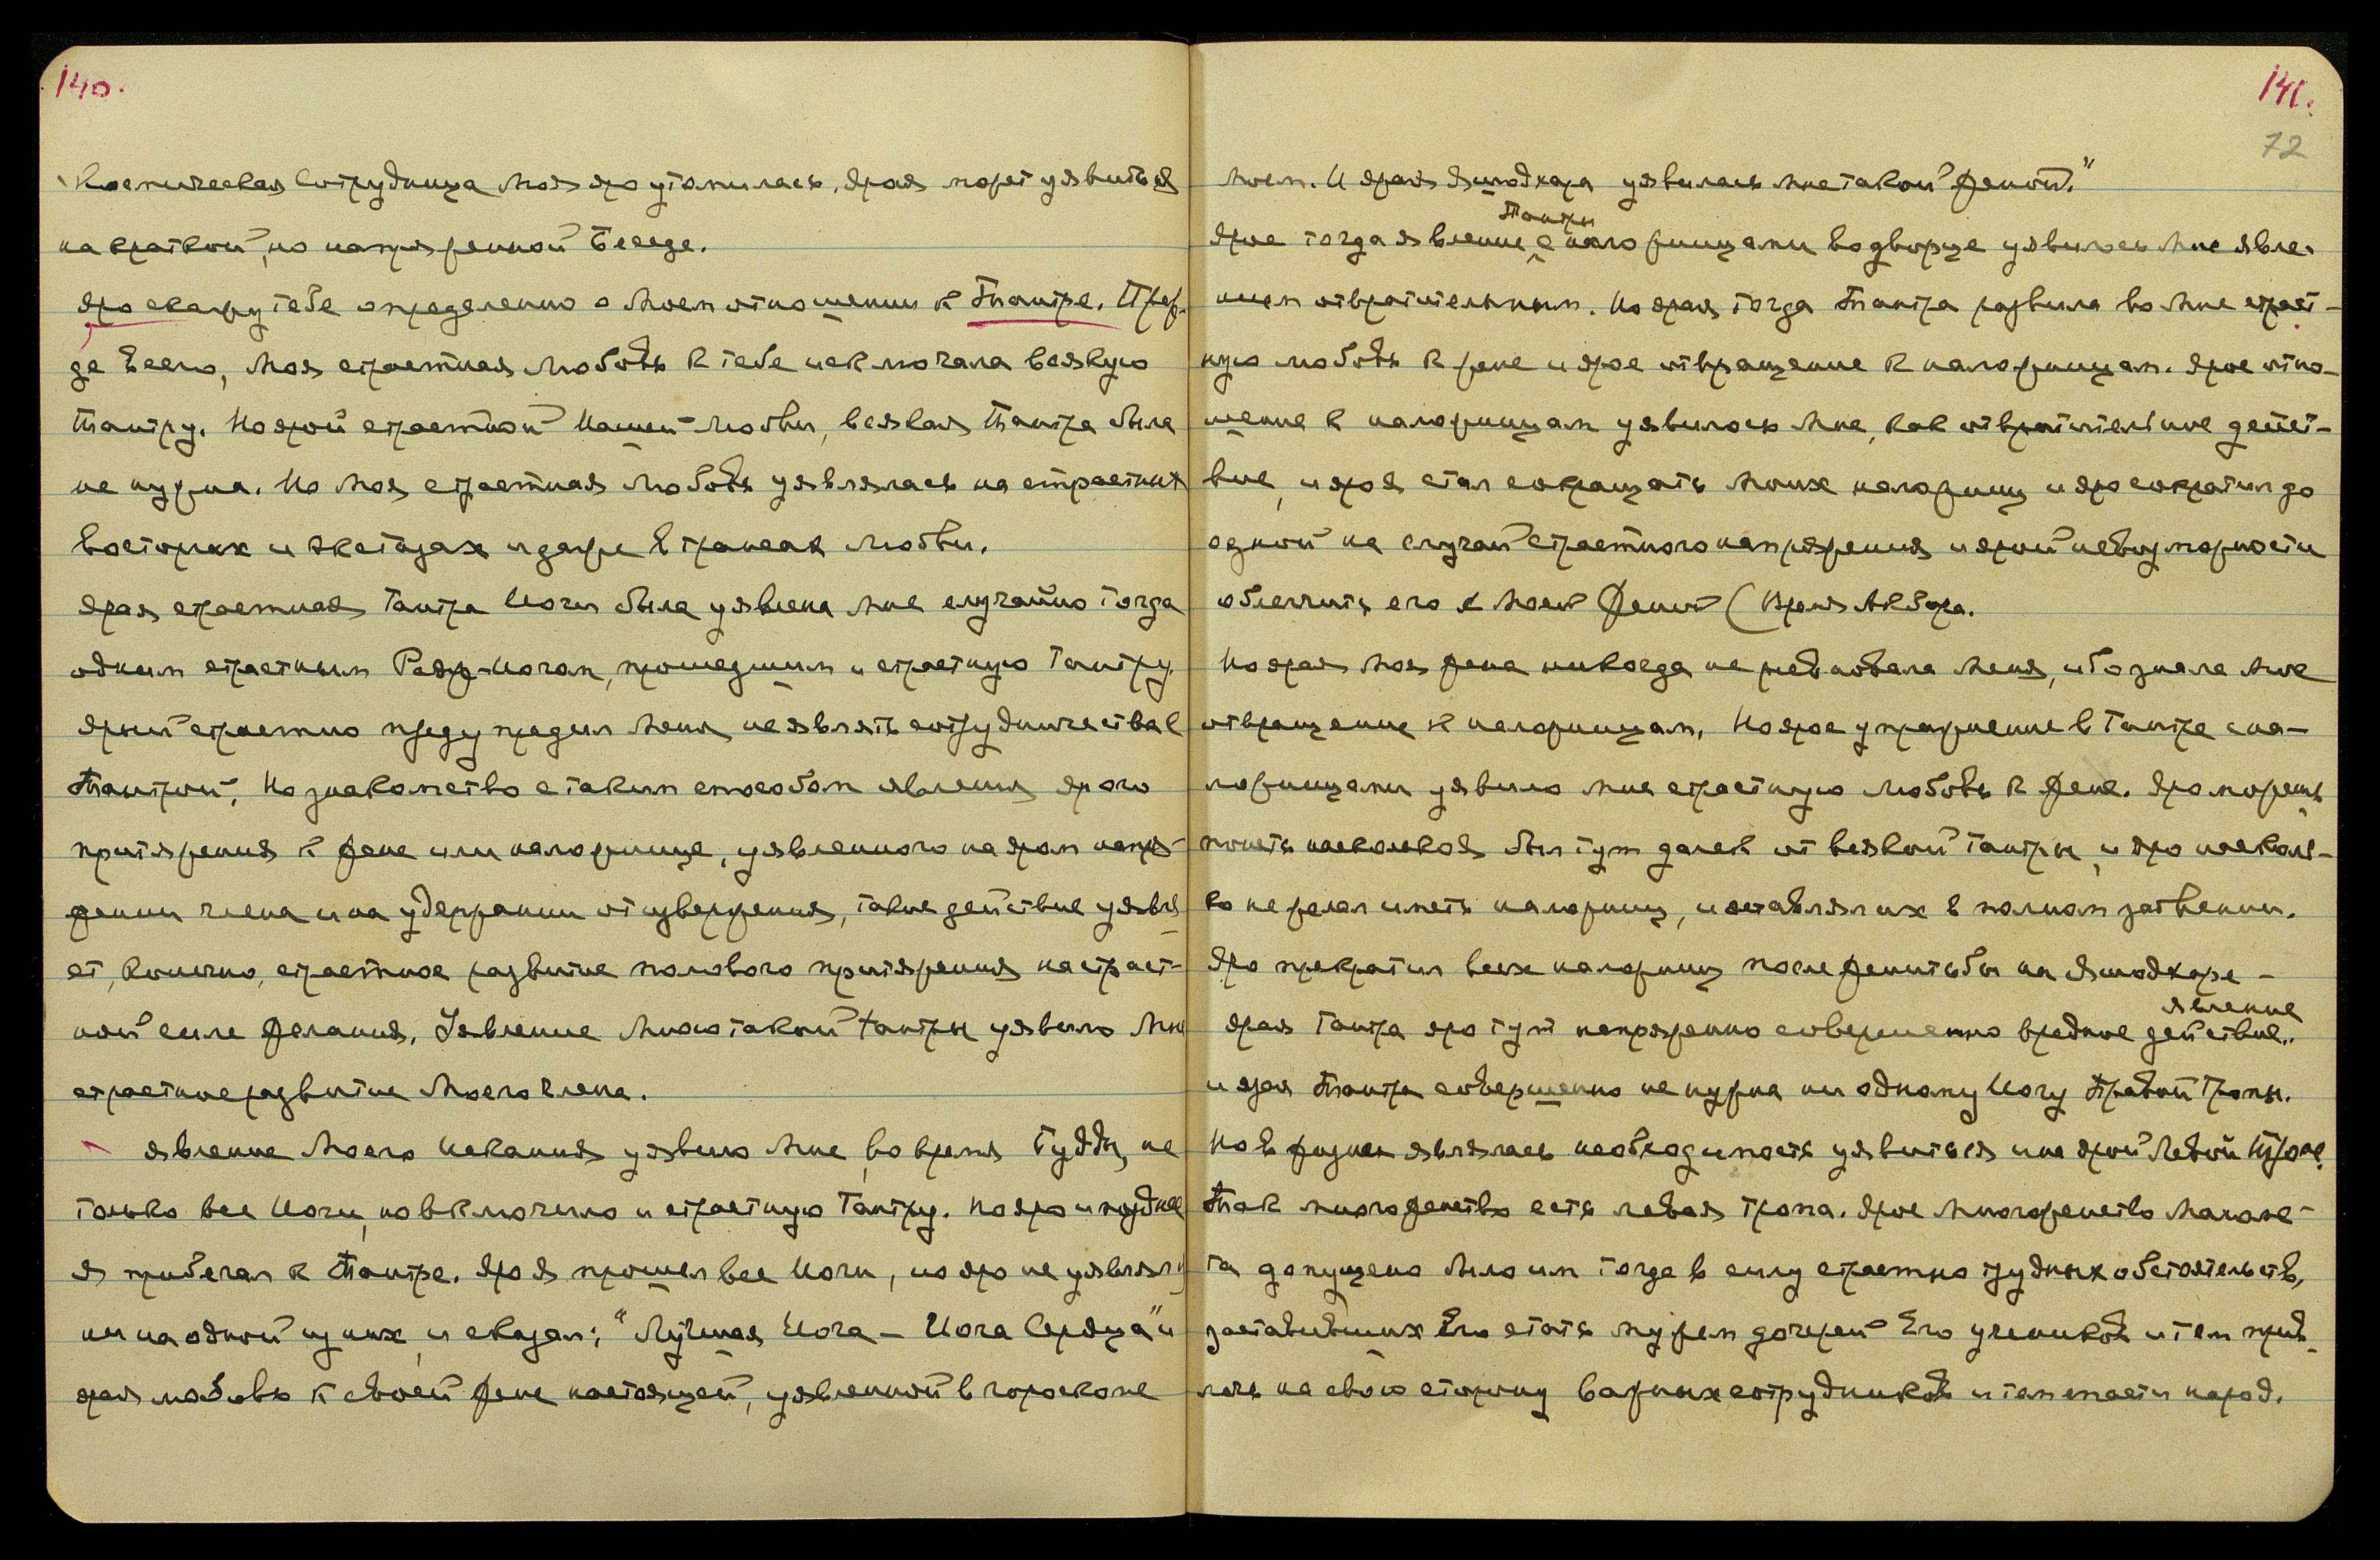 140.
Космическая Сотрудница Моя яро утомилась, ярая может уявиться
на краткой, но напряженной Беседе.
Яро скажу тебе определенно о Моем отношении к Тантре. Преж-
де всего, Моя страстная Любовь к тебе исключала всякую
Тантру. Но ярой страстной Нашей Любви, всякая Тантра была
не нужна. Но Моя страстная Любовь уявлялась на страстных
восторгах и экстазах и даже в трансах Любви.
Ярая страстная Тантра Йоги была уявлена Мне случайно тогда
одним страстным Раджа-Йогом, прошедшим и страстную Тантру.
Ярый страстно предупредил Меня не являть сотрудничества с
Тантрой. Но знакомство с таким способом явления ярого
притяжения к жене или наложнице, уявленного на яром напря-
жении члена и на удержании от извержения, такое действие уявля
ет, конечно, страстное развитие полового притяжения на страст-
ной силе желания. Уявление Мною такой Тантры уявило Мне
страстное развитие Моего члена.
Явление Моего Искания уявило Мне, во время Будды, не
только все Йоги, но включило и страстную Тантру. Но яро и позднее
Я прибегал к Тантре. Яро Я прошел все Йоги, но яро не уявлялся
ни на одной из них и сказал: "Лучшая Йога – Йога Сердца" и
ярая любовь к своей жене настоящей, уявленной в гороскопе
141.
72
Моем. И ярая Яшодхара уявилась Мне такой Женой."
Тантры
Ярое тогда явление с наложницами во дворце уявилось Мне явле-
нием отвратительным. Но ярая тогда Тантра развила во Мне страст-
ную любовь к жене и ярое отвращение к наложницам. Ярое отно-
шение к наложницам уявилось Мне, как отвратительное дейст-
вие, и яро Я стал сокращать Моих наложниц и яро сократил до
одной на случай страстного напряжения и ярой невозможности
облегчить его с Моей Женой (Время Акбара.
Но ярая Моя жена никогда не ревновала Меня, ибо знала Мое
отвращение к наложницам. Но ярое упражнение в Тантре с на-
ложницами уявило Мне страстную Любовь к Жене. Яро можешь
понять насколько Я был тут далек от всякой Тантры, и яро насколь-
ко не желал иметь наложниц, и оставлял их в полном забвении.
Яро прекратил всех наложниц после женитьбы на Яшодхаре –
явление
ярая Тантра яро тут напряженно совершенно вредное действие..
и ярая Тантра совершенно не нужна ни одному Йогу Правой Тропы.
Но в жизнях являлась необходимость уявиться и на ярой Левой Тропе.
Так многоженство есть левая тропа. Ярое Многоженство Магоме-
та допущено было им тогда в силу страстно трудных обстоятельств,
заставивших Его стать мужем дочерей Его учеников и тем прив
лечь на свою сторону важных сотрудников и тем спасти народ.